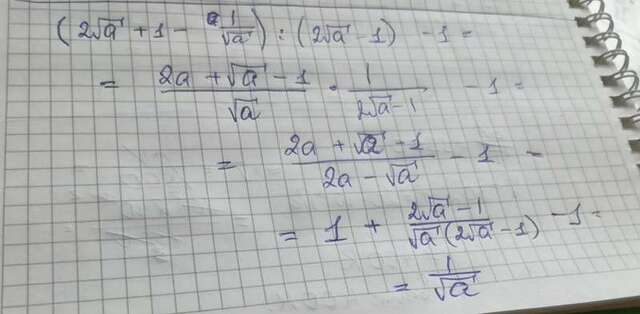 (2√a + 1 - 1/√a) : (2√a - 1) - 1 =
= (2a + √a - 1)/√a · 1/(2√a - 1) - 1 =
= (2a + √a - 1)/(2a - √a) - 1 =
= 1 + (2√a - 1)/(√a(2√a - 1)) - 1 =
= 1/√a